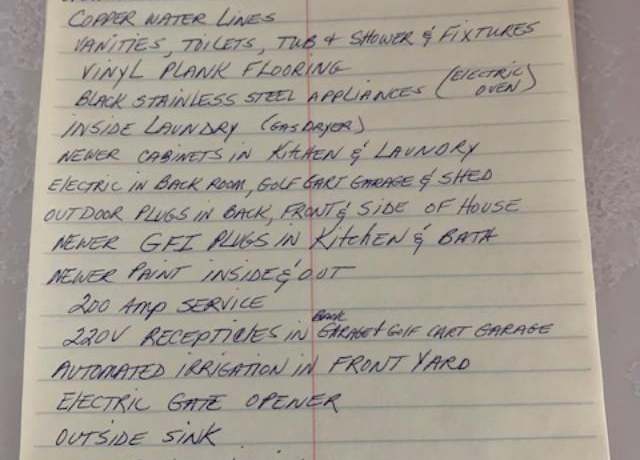 COPPER WATER LINES
VANITIES, TOILETS, TUB & SHOWER & FIXTURES
VINYL PLANK FLOORING
BLACK STAINLESS STEEL APPLIANCES (ELECTRIC OVEN)
INSIDE LAUNDRY (GAS DRYER)
NEWER CABINETS IN KITCHEN & LAUNDRY
ELECTRIC IN BACK ROOM, GOLF CART GARAGE & SHED
OUTDOOR PLUGS IN BACK, FRONT & SIDE OF HOUSE
NEWER GFI PLUGS IN KITCHEN & BATH
NEWER PAINT INSIDE & OUT
200 AMP SERVICE
220V RECEPTICLES IN BACK GARAGE & GOLF CART GARAGE
AUTOMATED IRRIGATION IN FRONT YARD
ELECTRIC GATE OPENER
OUTSIDE SINK